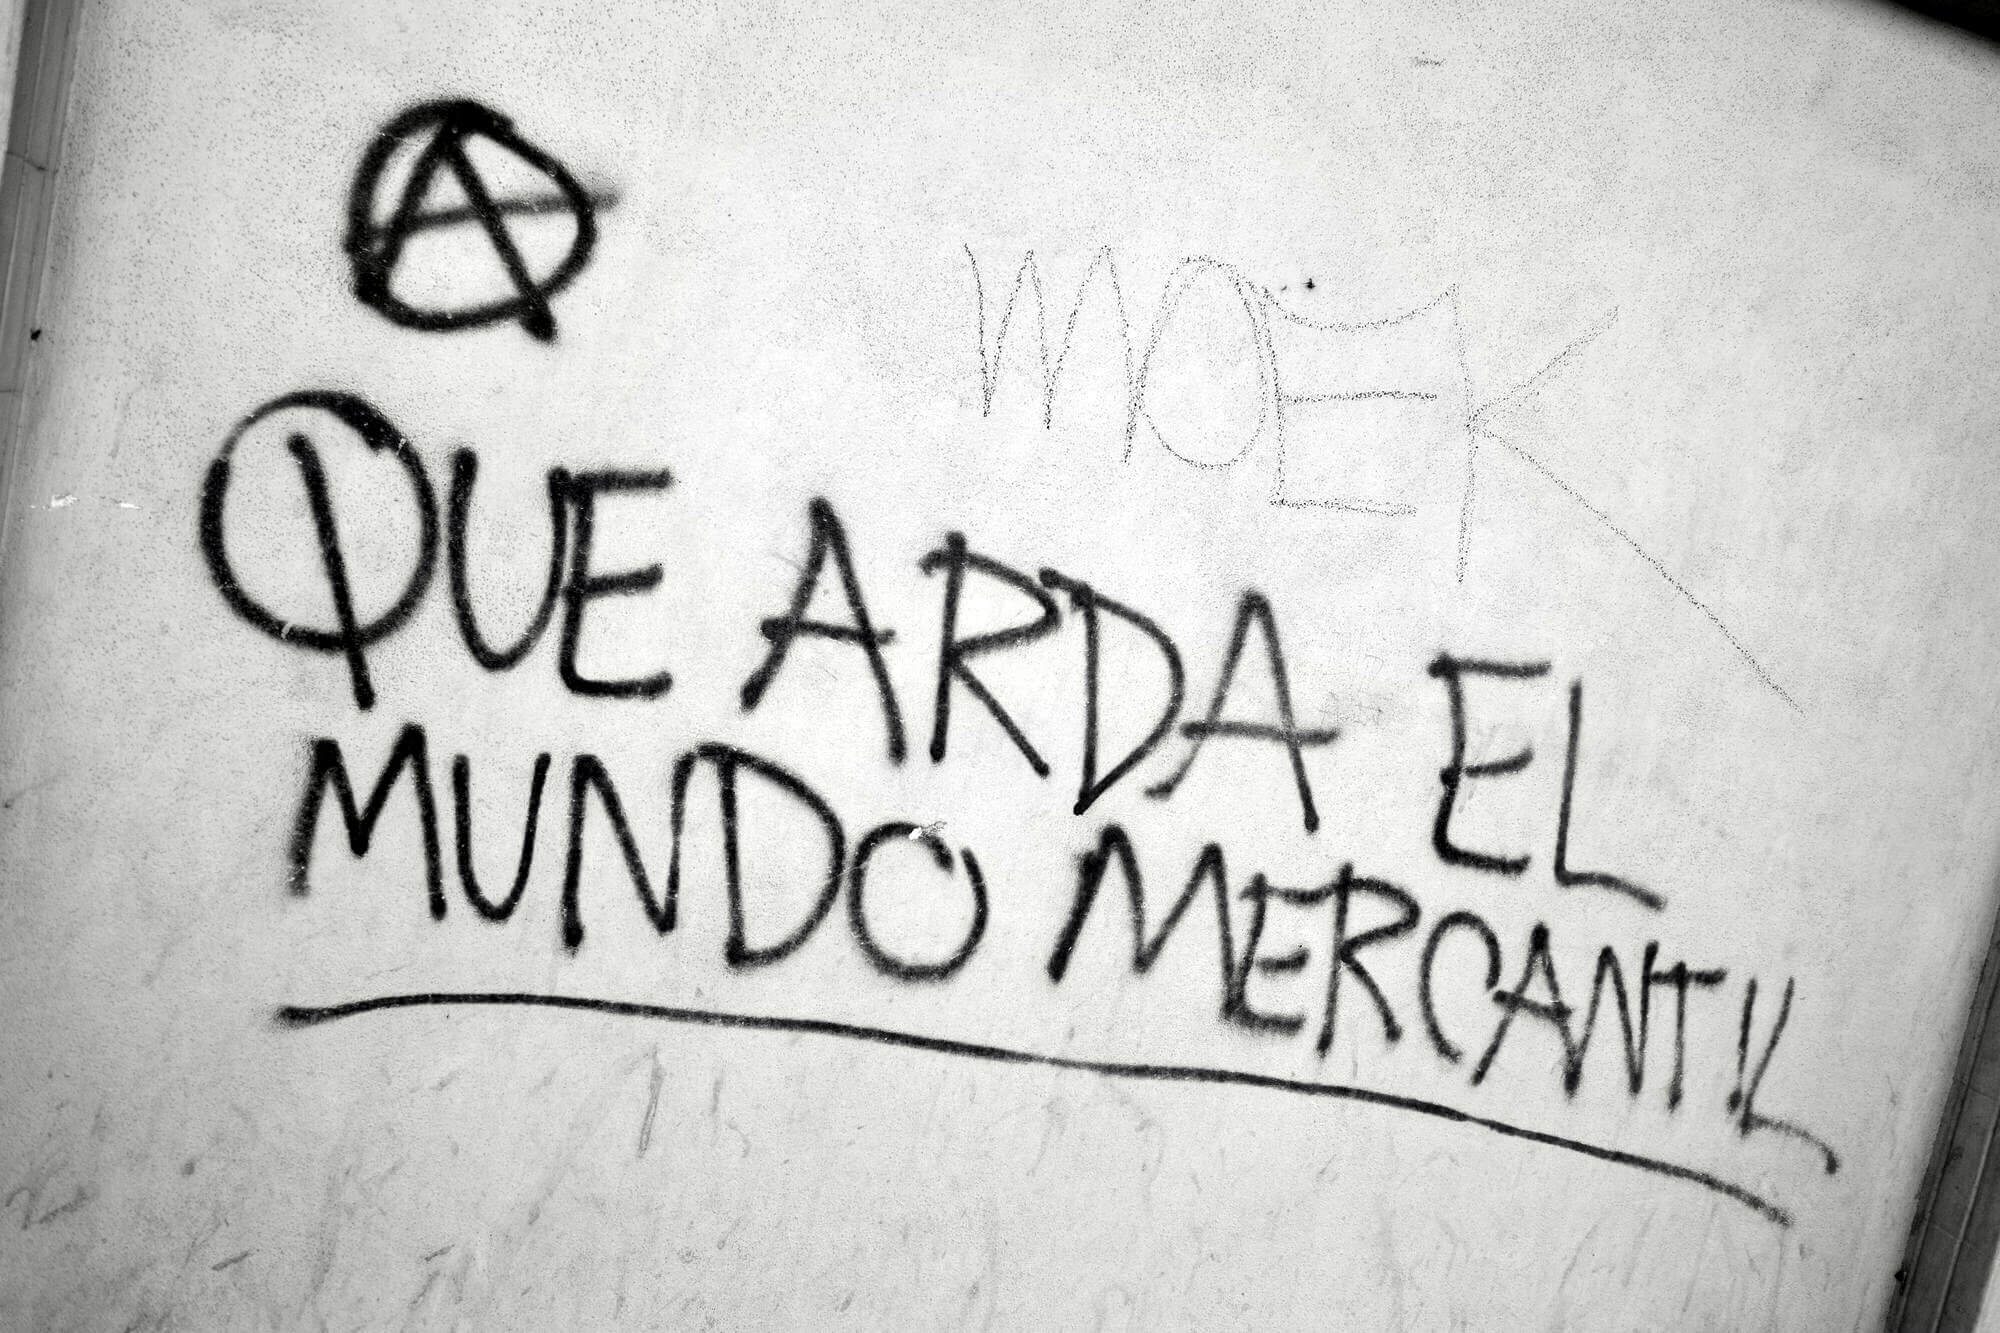 Ⓐ
MOEK
QUE ARDA EL
MUNDO MERCANTIL